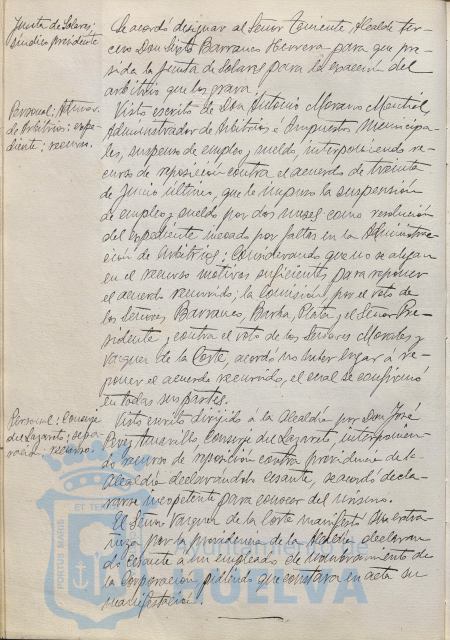 Junta de Solares;
síndico presidente
Se acordó designar al Señor Teniente Alcalde ter-
cero Don Sixto Barranco Herrera para que pre-
sida la Junta de Solares para la exacción del
arbitrio que los grava.
Personal; Admor.
de Arbitrios: expe-
diente; recurso.
Visto escrito de Don Antonio Morano Montiel,
Administrador de Arbitrios é Impuestos Municipa-
les, suspenso de empleo y sueldo, interponiendo re-
curso de reposición contra el acuerdo de treinta
de Junio último, que le impuso la suspensión
de empleo y sueldo por dos meses como resolución
del expediente incoado por faltas en la Administra-
ción de Arbitrios; Considerando que no se alegan
en el recurso motivos suficientes para reponer
el acuerdo recurrido; la Comisión por el voto de
los Señores Barranco, Barba, Plata y el Señor Pre-
sidente, contra el voto de los Señores Morales y
Vazquez de la Corte, acordó no haber lugar á re-
poner el acuerdo recurrido, el cual se confirmó
en todas sus partes.
Personal; Conserje
del Lazareto; separa-
ción - recurso.
Visto escrito dirigido á la Alcaldía por Don José
Perez Conserje del Lazareto, interponien-
do recurso de reposición contra providencia de la
Alcaldía declarandole cesante, se acordó decla-
rarse incopetente para conocer del mismo.
El Señor Vazquez de la Corte manifestó su extra-
ñeza por la providencia de la Alcaldía declaran-
do cesante a un empleado de nombramiento de
la Corporación pidiendo que constara en acta su
manifestación.
PORTUS MARIS ET TER
Ayuntamiento de
HUELVA